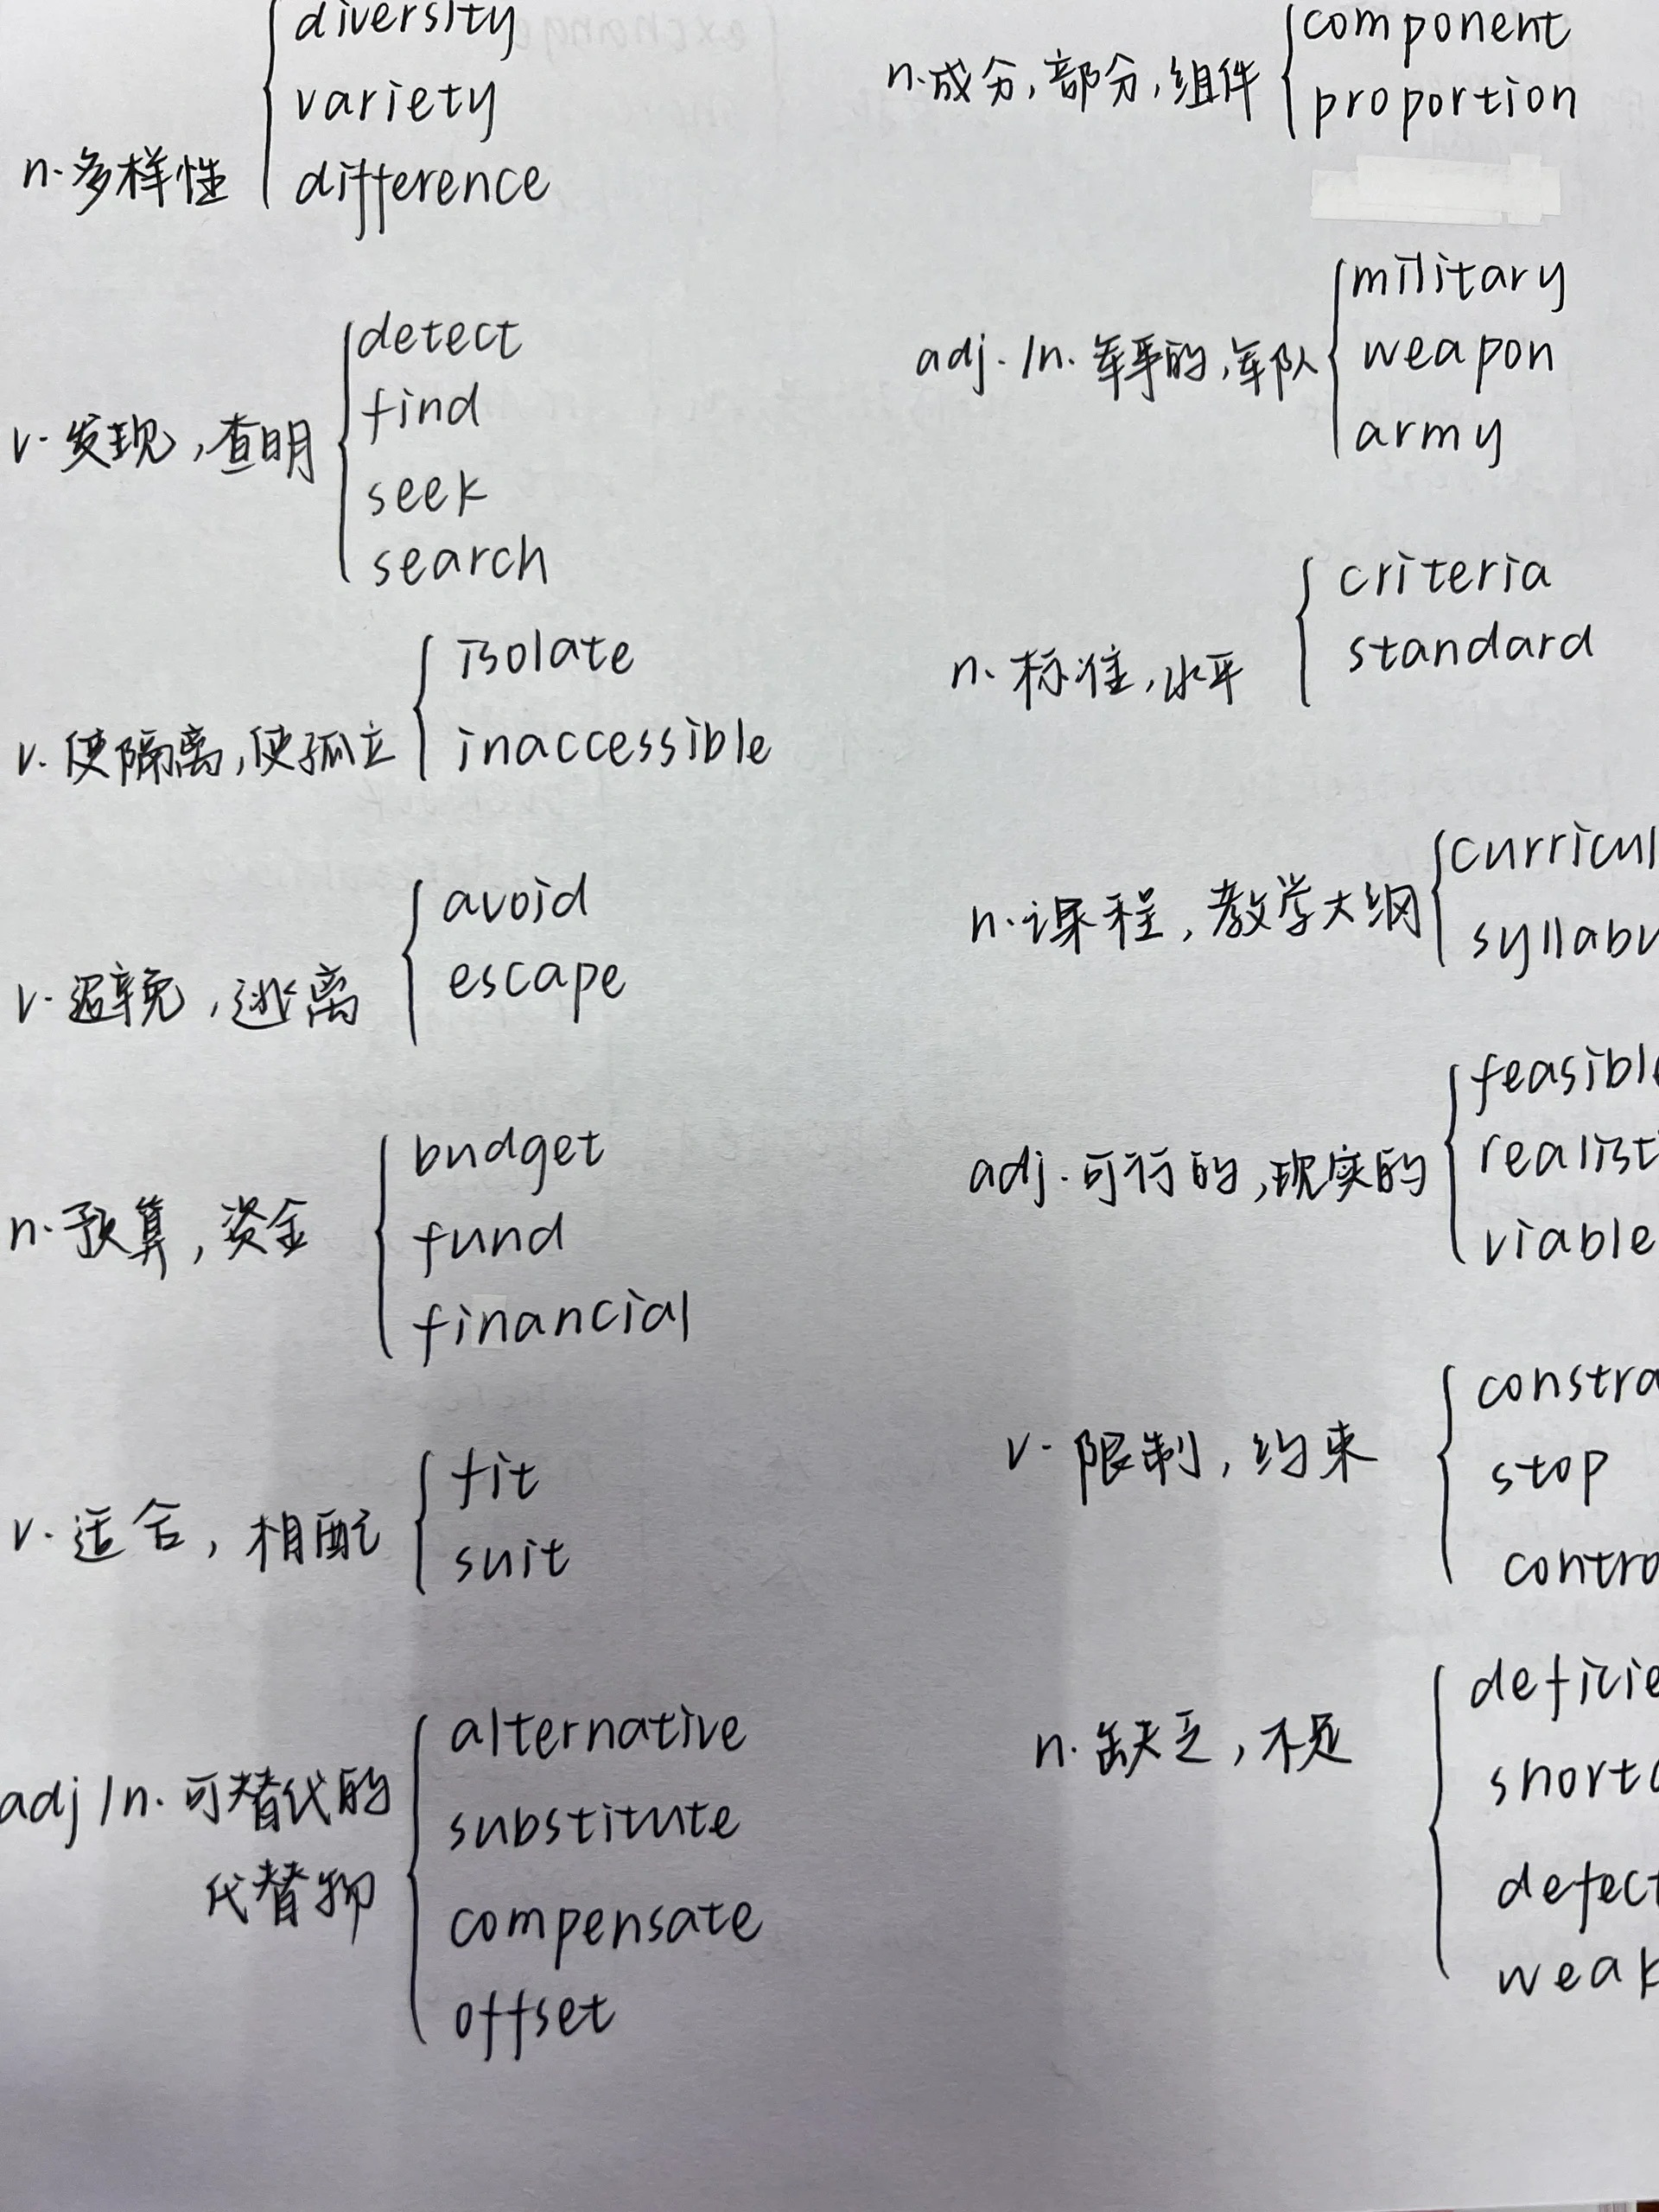 diversity
variety
n.多样性
difference
v.发现,查明
detect
find
seek
search
v.使隔离,使孤立
isolate
inaccessible
v.避免,逃离
avoid
escape
n.预算,资金
budget
fund
financial
v.适合,相配
fit
suit
adj/n.可替代的
代替物
alternative
substitute
compensate
offset
n.成分,部分,组件
component
proportion
adj./n.军事的,军队
military
weapon
army
n.标准,水平
criteria
standard
n.课程,教学大纲
curricul
syllabu
adj.可行的,现实的
feasible
realist
viable
v.限制,约束
constra
stop
contro
n.缺乏,不足
deficie
shortc
defect
weak